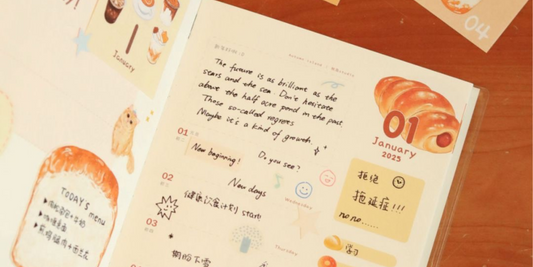 January
TODAY's
menu
The future is as brilliant as the
stars and the sea. Don't hesitate
about the half acre pond in the past
Those so-called regrets
Maybe it's a kind of growth
01
New beginning!
Do you see?
02
New days
健康饮食计划 start!
Wednesday
03
Thursday
期盼下雪
01
January
2025
拒绝
拖延症!!!
no no......
学习
04